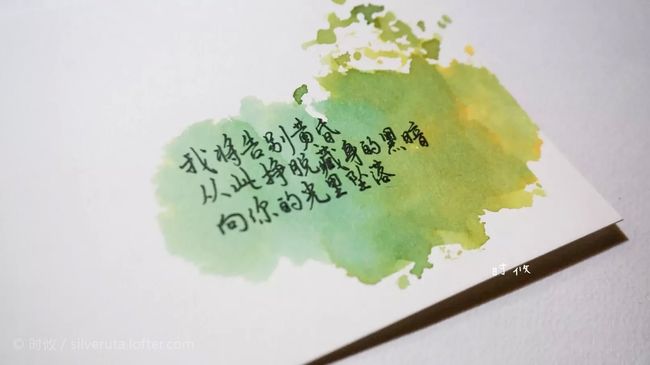 我将告别黄昏
从此挣脱藏身的黑暗
向你的光里坠落
时攸
© 时攸 / silveruta.lofter.com